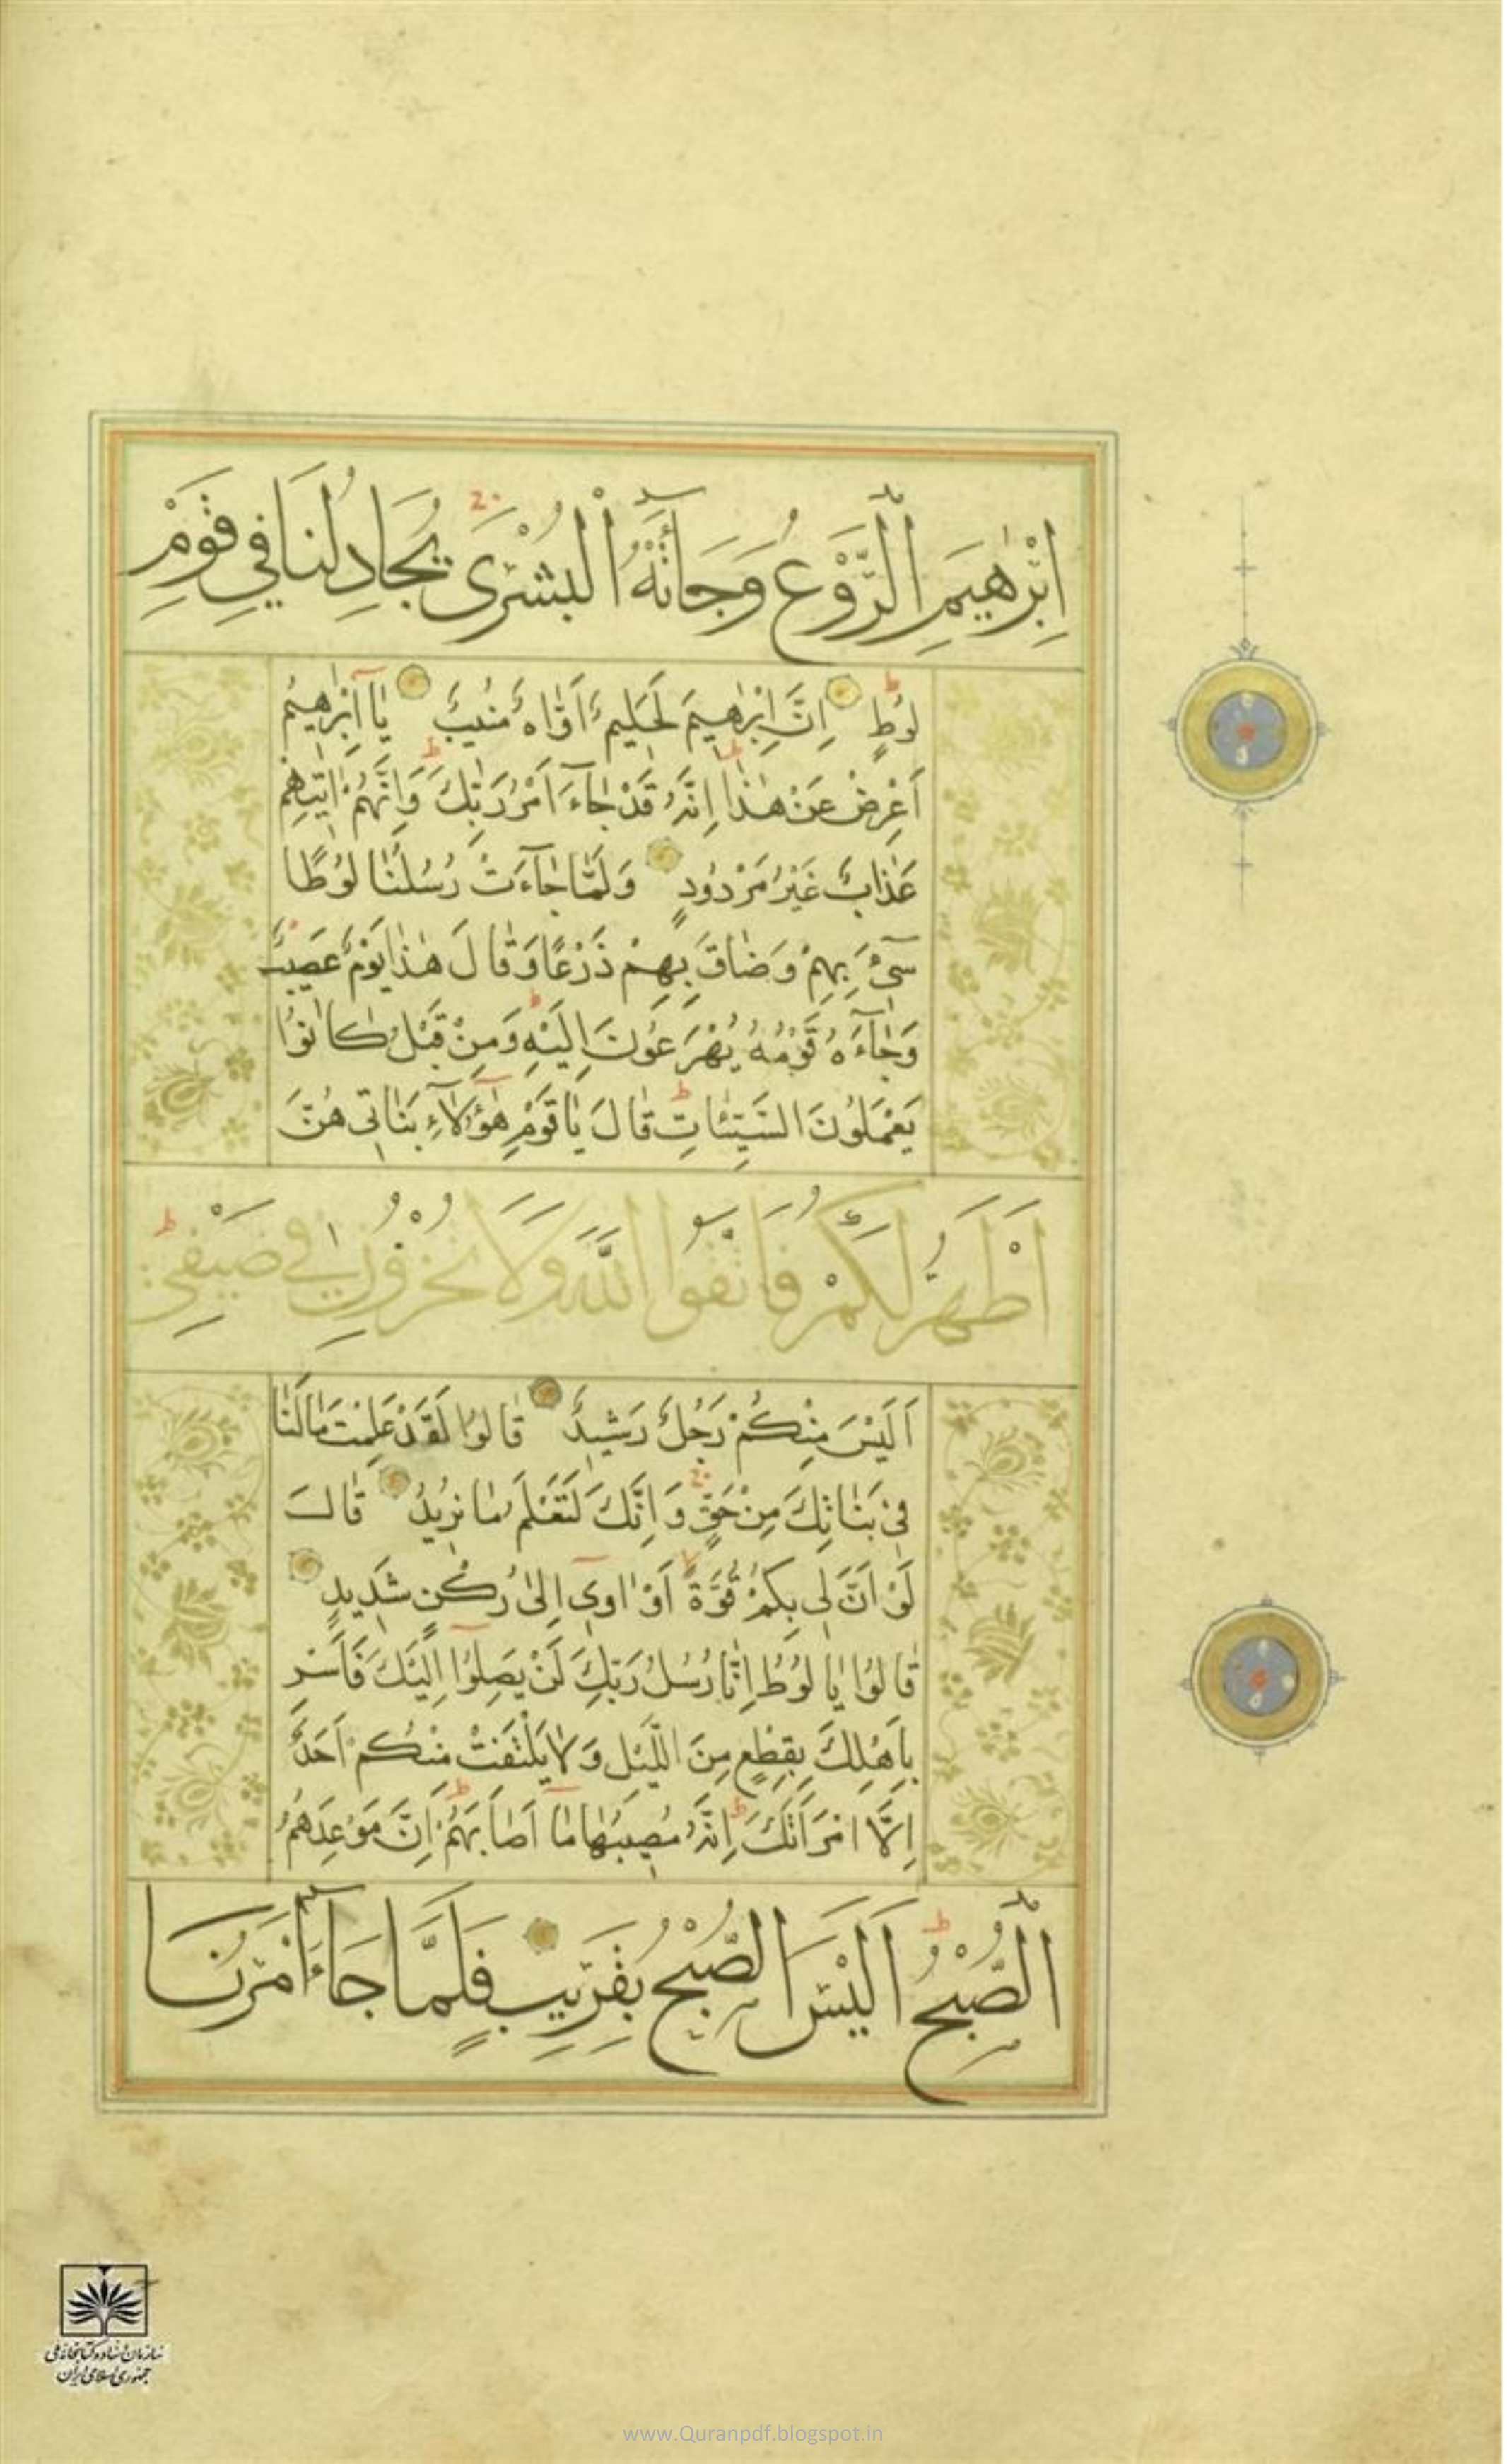 اِبْرٰهيمَ الرَّوْعُ وَجَآءَتْهُ الْبُشْرٰى يُجَادِلُنَا فِي قَوْمِ
لُوطٍ اِنَّ اِبْرٰهيمَ لَحَليمٌ اَوَّاهٌ مُنيبٌ يَا اِبْرٰهيمُ
اَعْرِضْ عَنْ هٰذَا اِنَّهُ قَدْ جَآءَ اَمْرُ رَبِّكَ وَاِنَّهُمْ اٰتيهِمْ
عَذَابٌ غَيْرُ مَرْدُودٍ وَلَمَّا جَآءَتْ رُسُلُنَا لُوطًا
سيٓءَ بِهِمْ وَضَاقَ بِهِمْ ذَرْعًا وَقَالَ هٰذَا يَوْمٌ عَصيبٌ
وَجَآءَهُ قَوْمُهُ يُهْرَعُونَ اِلَيْهِ وَمِنْ قَبْلُ كَانُوا
يَعْمَلُونَ السَّيِّئَاتِ قَالَ يَا قَوْمِ هٰٓؤُلَآءِ بَنَاتى هُنَّ
اَطْهَرُ لَكُمْ فَاتَّقُوا اللّٰهَ وَلَا تُخْزُونِ فِي ضَيْفِي
اَلَيْسَ مِنْكُمْ رَجُلٌ رَشيدٌ قَالُوا لَقَدْ عَلِمْتَ مَا لَنَا
فِي بَنَاتِكَ مِنْ حَقٍّ وَاِنَّكَ لَتَعْلَمُ مَا نُريدُ قَالَ
لَوْ اَنَّ لِي بِكُمْ قُوَّةً اَوْ اٰوي اِلٰى رُكْنٍ شَديدٍ
قَالُوا يَا لُوطُ اِنَّا رُسُلُ رَبِّكَ لَنْ يَصِلُوا اِلَيْكَ فَاَسْرِ
بِاَهْلِكَ بِقِطْعٍ مِنَ اللَّيْلِ وَلَا يَلْتَفِتْ مِنْكُمْ اَحَدٌ
اِلَّا امْرَاَتَكَ اِنَّهُ مُصيبُهَا مَا اَصَابَهُمْ اِنَّ مَوْعِدَهُمُ
الصُّبْحُ اَلَيْسَ الصُّبْحُ بِقَرِيبٍ فَلَمَّا جَآءَ اَمْرُنَا
سازمان اسناد و کتابخانه ملی
جمهوری اسلامی ایران
www.Quranpdf.blogspot.in